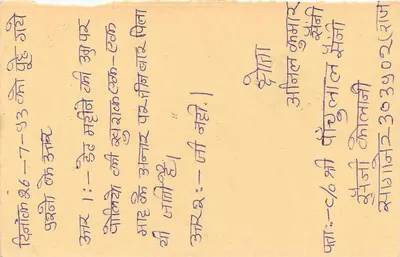 दिनांक २६-7-93 को पूछे गये
प्रश्नो के उत्तर
उत्तर 1:- डेढ महीने की उम्र पर
पोलियो की खुराक एक-एक
माह के अन्तर पर तीन बार पिला
यी जाती है।
उत्तर २:- जी नही।
प्रेषक
अनिल कुमार
सैनी
पता:- c/o श्री पांचुलाल सैनी
सैनी कोलोनी
सांगानेर 303902 (राज